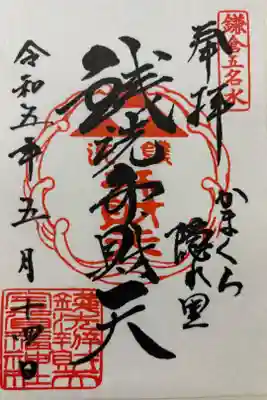 鎌倉五名水
奉拝
かまくら
隠れ里
銭洗弁財天
令和五年五月
十四日